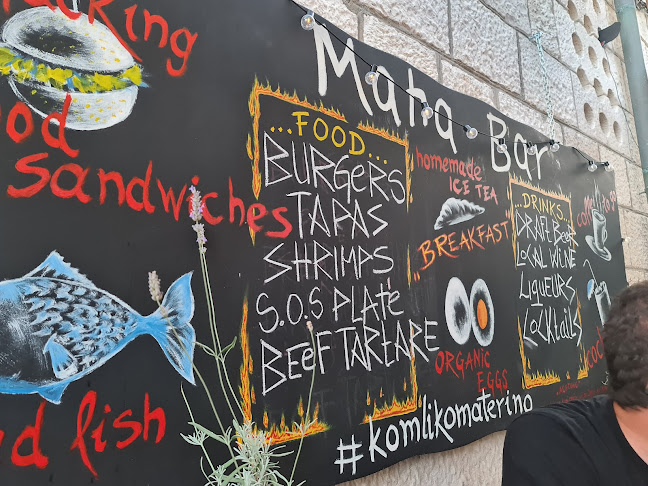 Maha Bar
sandwiches
fish
...FOOD...
BURGERS
TAPAS
SHRIMPS
S.O.S PLATE
BEEF TARTARE
homemade
ICE TEA
"BREAKFAST"
ORGANIC
EGGS
..DRINKS..
DRAFT BEER
LOCAL WINE
LIQUEURS
COCKTAILS
#komlikomaterino